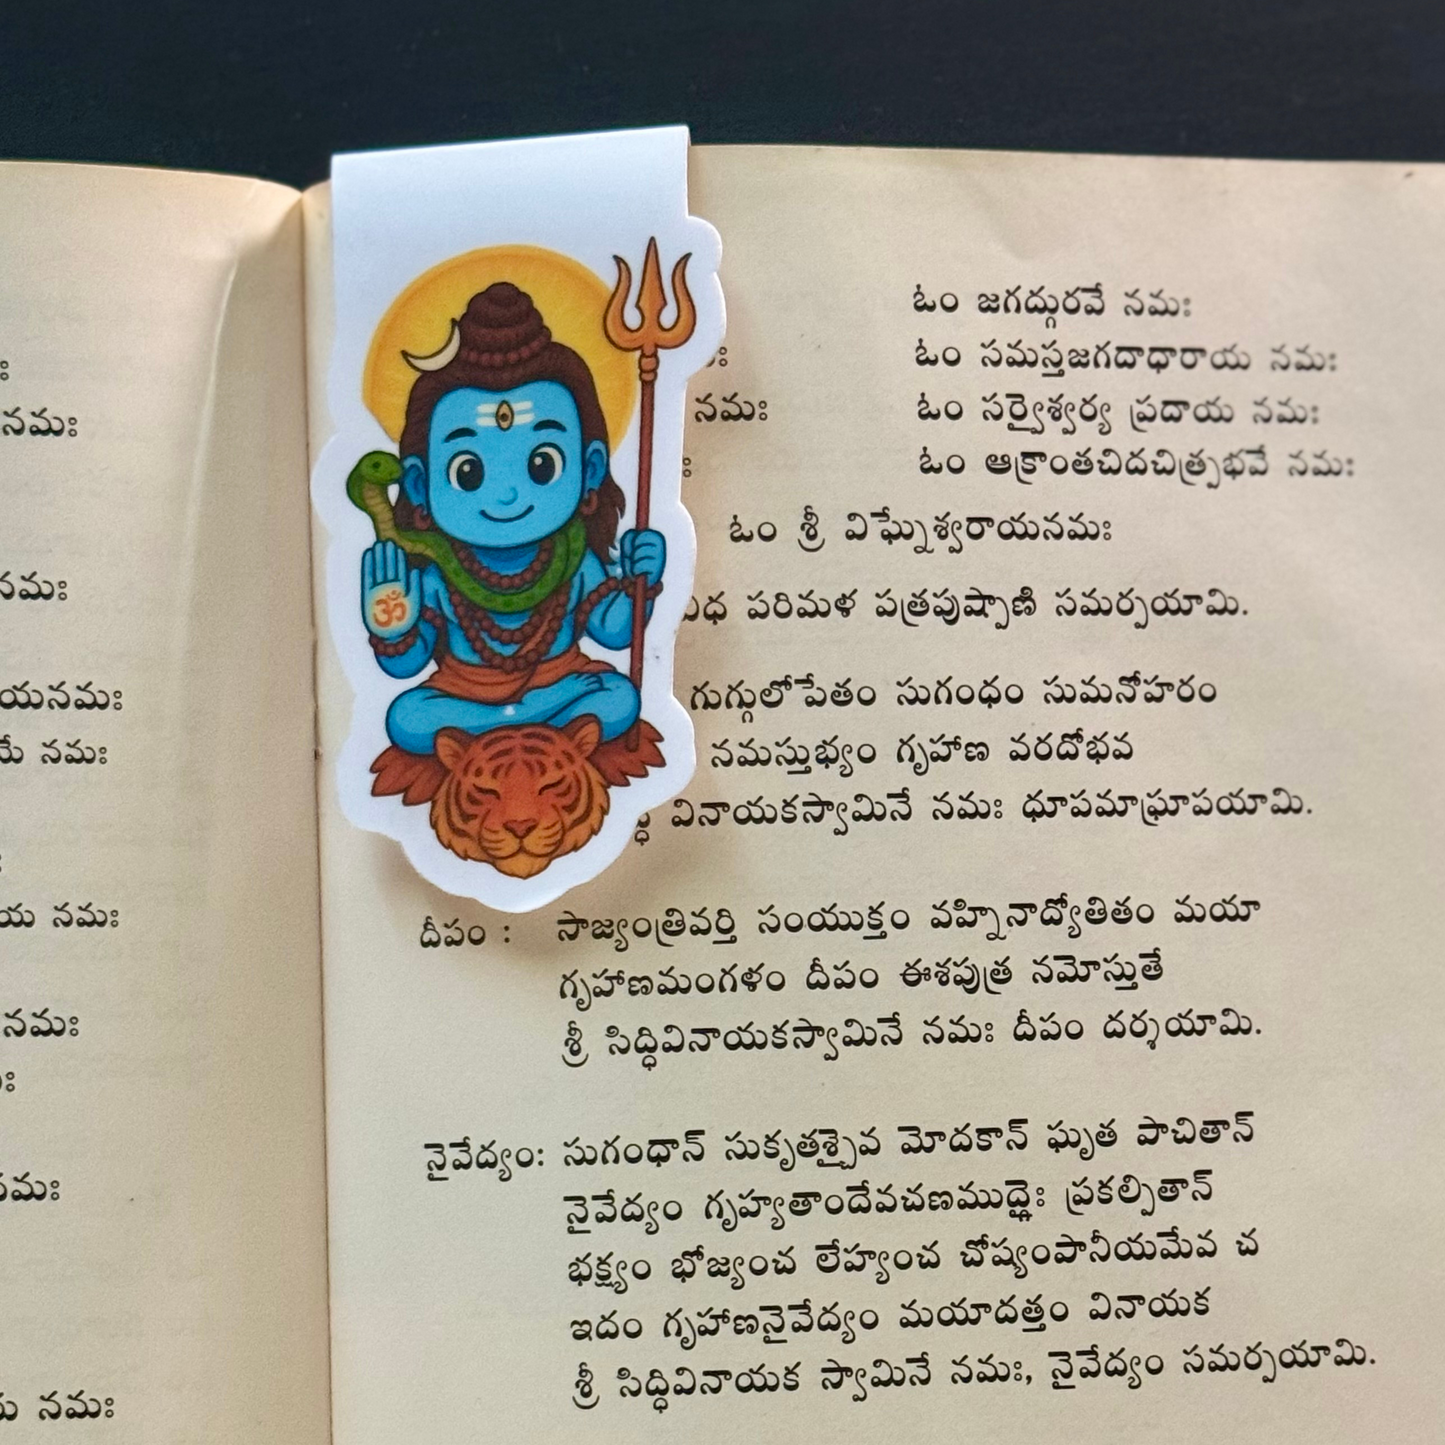 నమః
నమః
యనమః
నమః
నమః
నమః
నమః
నమః
ఓం జగద్గురవే నమః
ఓం సమస్తజగదాధారాయ నమః
నమః ఓం సర్వైశ్వర్య ప్రదాయ నమః
ఓం ఆక్రాంతచిదచిత్ప్రభవే నమః
ఓం శ్రీ విఘ్నేశ్వరాయనమః
పరిమళ పత్రపుష్పాణి సమర్పయామి.
గుగ్గులోపేతం సుగంధం సుమనోహరం
నమస్తుభ్యం గృహాణ వరదోభవ
వినాయకస్వామినే నమః ధూపమాఘ్రాపయామి.
ॐ
దీపం : సాజ్యంత్రివర్తి సంయుక్తం వహ్నినాద్యోతితం మయా
గృహాణమంగళం దీపం ఈశపుత్ర నమోస్తుతే
శ్రీ సిద్ధివినాయకస్వామినే నమః దీపం దర్శయామి.
నైవేద్యం: సుగంధాన్ సుకృతశ్చైవ మోదకాన్ ఘృత పాచితాన్
నైవేద్యం గృహ్యతాందేవచణముద్గైః ప్రకల్పితాన్
భక్ష్యం భోజ్యంచ లేహ్యంచ చోష్యంపానీయమేవ చ
ఇదం గృహాణనైవేద్యం మయాదత్తం వినాయక
శ్రీ సిద్ధివినాయక స్వామినే నమః, నైవేద్యం సమర్పయామి.